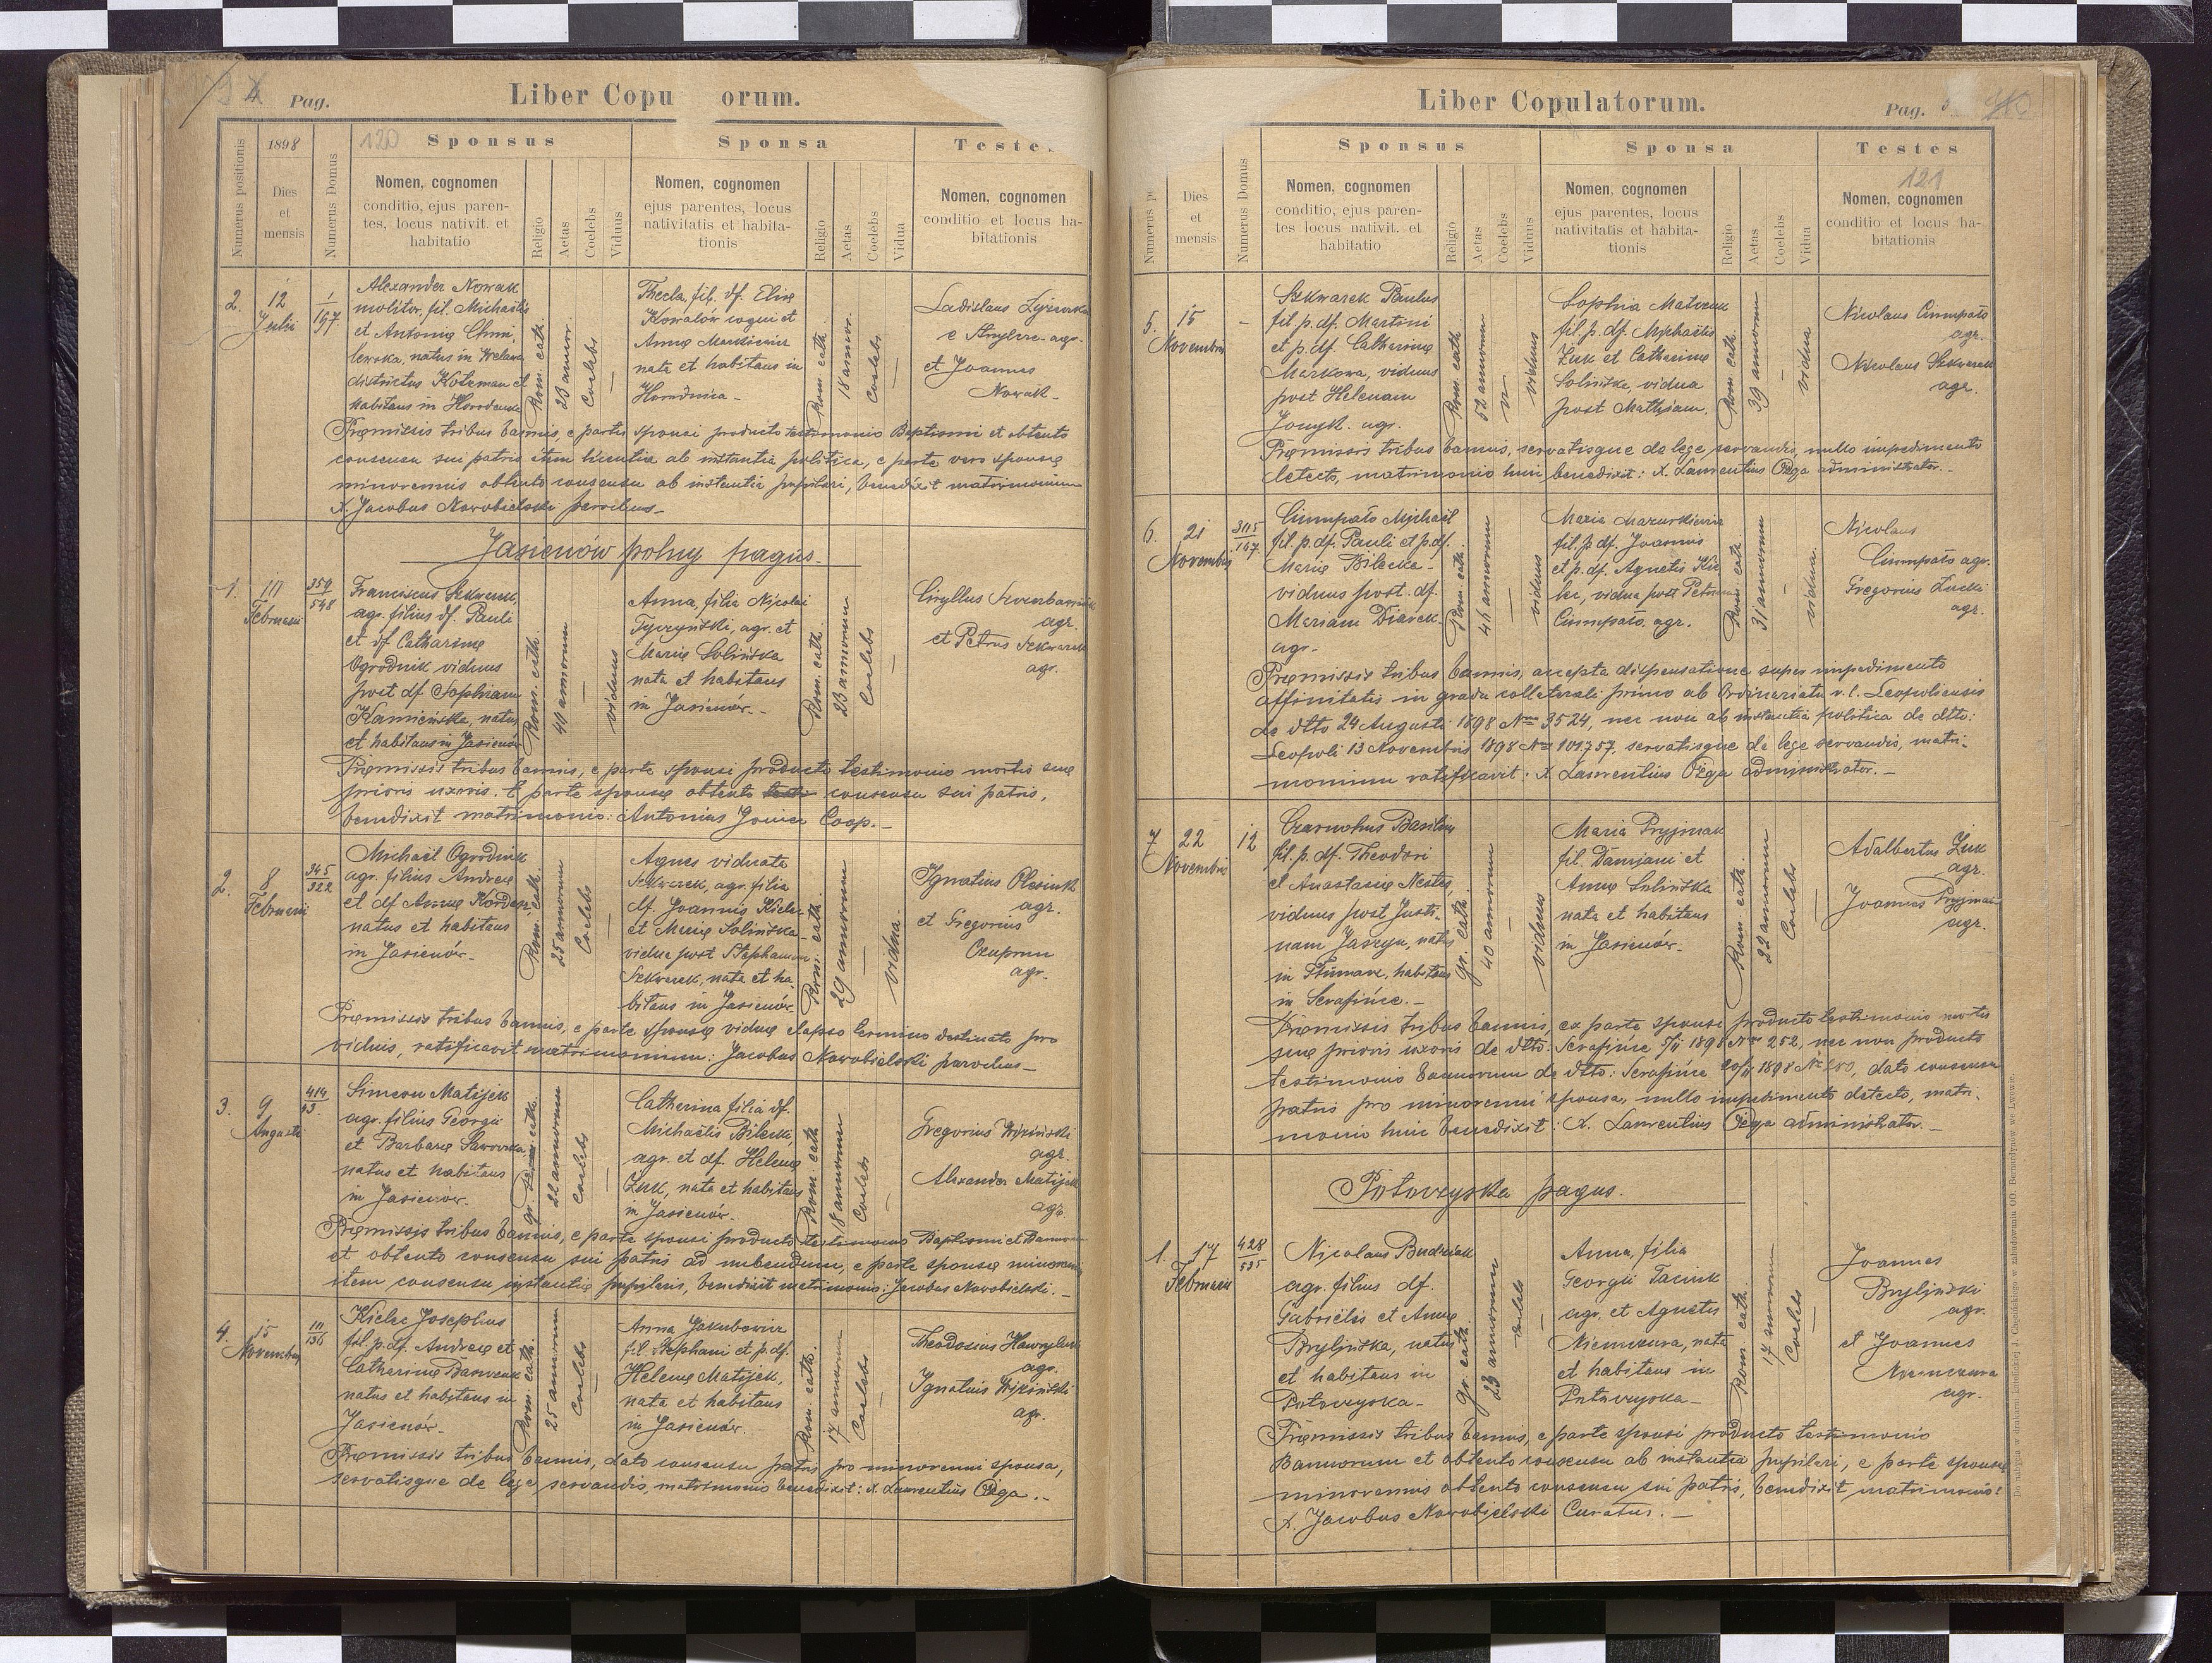 Pag.
Liber Copu orum.
120
Numerus positionis
1898
Dies
et
mensis
Numerus Domus
Sponsus
Nomen, cognomen
conditio, ejus paren-
tes, locus nativit. et
habitatio
Religio
Aetas
Coelebs
Viduus
Sponsa
Nomen, cognomen
ejus parentes, locus
nativitatis et habita-
tionis
Religio
Aetas
Coelebs
Vidua
Testes
Nomen, cognomen
conditio et locus ha-
bitationis
2.
12
Julii
1
197
Alexander Nowak
molitor, fil. Michaelis
et Antoniæ Chmi-
lewska, natus in
districtus Kotzman et
habitans in Horodenka
Rom. cath.
23 annor.
Coelebs
—
Thecla, fil. df. Eliæ
Kowalów coqui et
Annæ Markiewicz
nata et habitans in
Horodnica –
Rom. cath.
18 annor.
Coelebs
—
Ladislaus
agr.
et Joannes
Nowak –
Præmissis tribus bannis, e parte sponsi producto testimonio Baptismi et obtento
consensu sui patris item licentia ab instantia politica, e parte vero sponsæ
minorennis obtento consensu ab instantia pupilari, benedixit matrimonium
X. Jacobus Nowobielski parochus –
Jasienów polny pagus.
1.
Februarii
359
548
Franciscus Szkwarek,
agr. filius df. Pauli
et df Catharinæ
Ogrodnik viduus
post df Sophiam
Kamieńska, natus
et habitans in Jasienów
Rom. cath.
40 annorum
—
viduus
Anna, filia Nicolai
Tyczyński, agr. et
Mariæ Solińska
nata et habitans
in Jasienów. –
Rom. cath.
23 annorum
Coelebs
—
Cyryllus
agr.
et Petrus Szkwarek
agr.
Præmissis tribus bannis, e parte sponsi producto testimonio mortis suæ
prioris uxoris. E parte sponsæ obtento consensu sui patris,
benedixit matrimonio: Antonius Coop. –
2.
8
Februarii
345
322
Michaël Ogrodnik
agr. filius Andreæ
et df Annæ
natus et habitans
in Jasienów. –
Rom. cath.
25 annorum
Coelebs
—
Agnes viduata
Szkwarek, agr. filia
df. Joannis Kielec
et Mariæ Solińska
vidua post Stephanum
Szkwarek, nata et ha-
bitans in Jasienów
Rom. cath.
29 annorum
—
vidua
Ignatius Olesiuk
agr.
et Gregorius
Czuprun
agr.
Præmissis tribus bannis, e parte sponsæ viduæ elapso termino destinato pro
viduis, ratificavit matrimonium: Jacobus Nowobielski parochus –
3.
9
Augusti
414
93
Simeon Matijek
agr. filius Georgii
et Barbaræ
natus et habitans
in Jasienów.
gr. cath.
22 annorum
Coelebs
—
Catharina filia df.
Michaëlis Bilecki
agr. et df. Helenæ
Żuk, nata et habitans
in Jasienów.
Rom. cath
18 annorum
Coelebs
—
Gregorius
agr.
Alexander Matijek
agr.
Præmissis tribus bannis, e parte sponsi producto testimonio Baptismi et Bannorum
et obtento consensu sui patris ad nubendum, e parte sponsæ minorennis
item consensu instantiæ pupilaris, benedixit matrimonio: Jacobus Nowobielski. –
4.
15
Novembris
111
136
Kielec Josephus
fil. p. df. Andreæ et
Catharinæ
natus et habitans in
Jasienów. –
Rom. cath.
25 annorum
Coelebs
—
Anna Jakubowicz
fil. Stephani et p. df.
Helenæ Matijek,
nata et habitans
in Jasienów.
Rom. cath.
17 annorum
Coelebs
—
Theodosius Hawryluk
agr.
Ignatius
agr.
Præmissis tribus bannis, dato consensu patris pro minorenni sponsa,
servatisque de lege servandis, matrimonio benedixit: X. Laurentius Ożga. –
Liber Copulatorum.
Pag. 5
121
Numerus p
Dies
et
mensis
Numerus Domus
Sponsus
Nomen, cognomen
conditio, ejus paren-
tes locus nativit. et
habitatio
Religio
Aetas
Coelebs
Viduus
Sponsa
Nomen, cognomen
ejus parentes, locus
nativitatis et habita-
tionis
Religio
Aetas
Coelebs
Vidua
Testes
Nomen, cognomen
conditio et locus ha-
bitationis
5.
15
Novembris
–
Szkwarek Paulus
fil. p. df. Martini
et p. df. Catharinæ
Markowa, viduus
post Helenam
agr.
Rom. cath.
52 annorum
viduus
Sophia
fil. p. df. Michaëlis
Żuk et Catharinæ
Solińska, vidua
post Mathiam.
Rom. cath.
39 annorum
–
vidua
Nicolaus Ciumpało
agr.
Nicolaus Szkwarek
agr.
Præmissis tribus bannis, servatisque de lege servandis, nullo impedimento
detecto, matrimonio huic benedixit: X. Laurentius Ożga administrator. –
6.
21
Novembris
167
Ciumpało Michaël
fil. p. df. Pauli et p. df.
Mariæ Bilecka –
viduus post. df.
Mariam
agr. –
Rom. cath.
annorum
—
viduus
Maria Mazurkiewicz
fil. p df. Joannis
et p. df. Agnetis Kie
lec, vidua post Petrum
Ciumpało. agr.
Rom. cath
31 annorum
–
vidua.
Nicolaus
Ciumpało agr.
Gregorius Żucki
agr.
Præmissis tribus bannis, accepta dispensatione super impedimento
affinitatis in gradu collaterali primo ab Ordinariatu r. l. Leopoliensis
de dtto 24 Augusti 1898 Nro 3524, nec non ab instantia politica de dtto:
Leopoli 13 Novembris 1898 Nro 101757, servatisque de lege servandis, matri-
monium ratificavit: X Laurentius Ożga administrator. –
7
22
Novembris
12
Czarnohus Basilius
fil. p. df. Theodori
et Anastasiæ Nestor,
viduus post Justi-
nam Jaszyn, natus
in habitans
in Serafińce. –
gr. cath.
40 annorum
–
viduus
Maria Pryjmak
fil. Damjani et
Annæ Solińska
nata et habitans
in Jasienów. –
Rom. cath.
22 annorum
Coelebs
—
Adalbertus Żuk
agr.
Joannes Pryjmak
agr.
Præmissis tribus bannis, ex parte sponsi producto testimonio mortis
suæ prioris uxoris de dtto: Serafińce 5/11 1898 Nro 252, nec non producto
testimonio bannorum de dtto: Serafińce 20/11 1898 Nr dato consensu
patris pro minorenni sponsa, nullo impedimento detecto, matri-
monio huic benedixit: X. Laurentius Ożga administrator. –
Potoczyska pagus.
1.
17
Februarii
428
535
Nicolaus Budziak
agr. filius df.
Gabriëlis et Annæ
Brylińska, natus
et habitans in
Potoczyska –
gr. cath.
23 annorum
coelebs
—
Anna, filia
Georgii Taciuk
agr. et Agnetis
Niemczura, nata
et habitans in
Potoczyska –
Rom. cath.
17 annorum
Coelebs
—
Joannes
Bryliński
agr.
et Joannes
Niemczura
agr.
Præmissis tribus bannis, e parte sponsi producto testimonio
Bannorum et obtento consensu ab instantia pupilari, e parte sponsæ
minorennis obtento consensu sui patris, benedixit matrimonio:
X. Jacobus Nowobielski Curatus. –
Do nabycia w drukarni i introligatorni J. Chęcińskiego w zabudowaniu OO. Bernardynów we Lwowie.